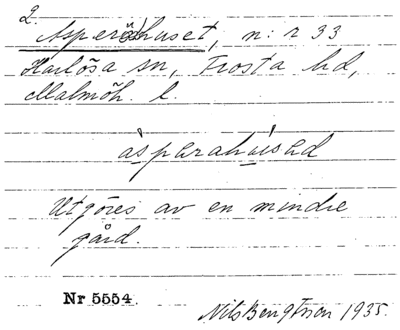 2.
Asperödhuset, n:r 33
Harlösa sn, Frosta hd,
Malmöh. l.
ásparahùisəd
Utgöres av en mindre
gård.
Nr 5554.
Nils Bengtsson 1935.